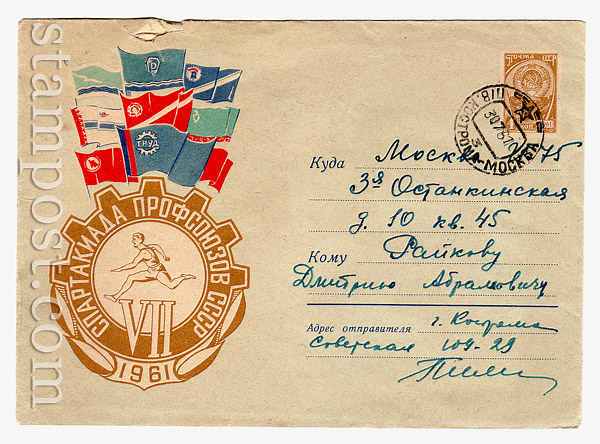 stampost.com
ТРУД
СПАРТАКИАДА ПРОФСОЮЗОВ СССР
VII
1961
ПОЧТА СССР
П/В КОСТРОМА-МОСКВА
Куда Москва 75
3я Останкинская
д. 10 кв. 45
Кому Райкову
Дмитрию Абрамовичу
Адрес отправителя г. Кострома
Советская 104-29